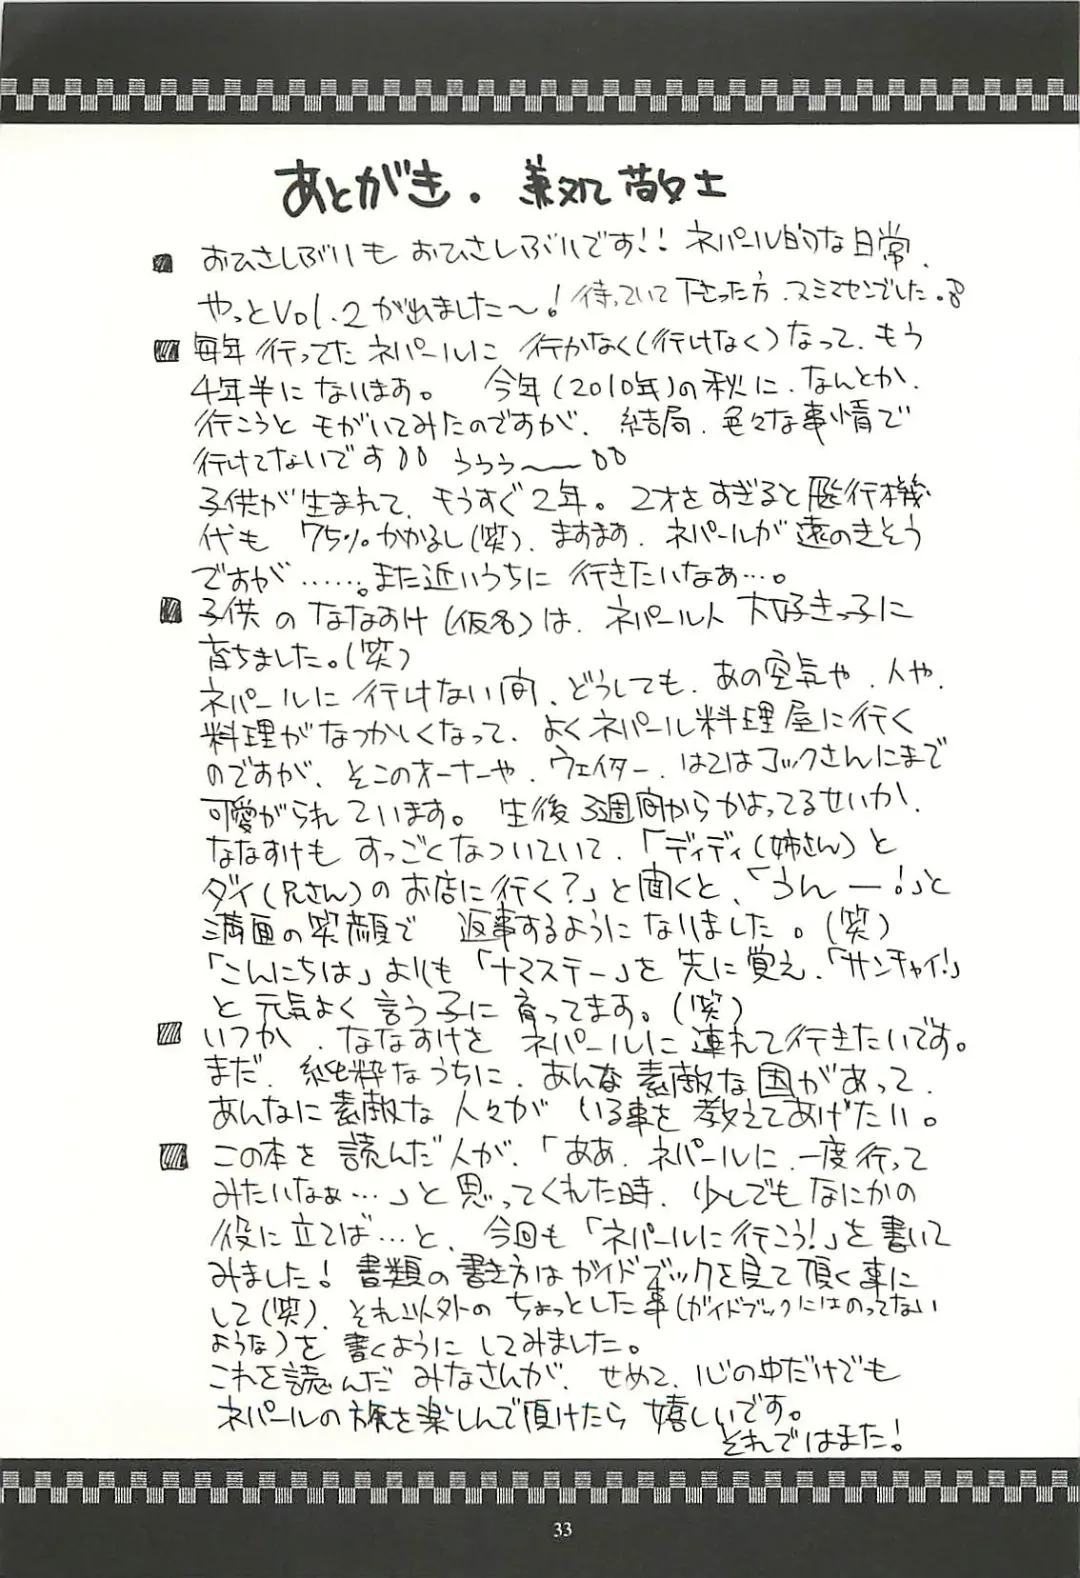 あとがき. 兼処敬士
■ おひさしぶりも おひさしぶりです!! ネパール的な日常.
やっとVol.2が出ましたー! 待っていて下さった方.スミマセンでした。
■ 毎年行ってたネパールに 行かなく(行けなく)なって.もう
4年半になります。 今年(2010年)の秋に.なんとか.
行こうと モがいてみたのですが、結局.色々な事情で
行けてないです うぅぅ〜
子供が生まれて、もうすぐ2年。2才をすぎると飛行機
代も 75%かかるし(笑)、ますます.ネパールが遠のきそう
ですが……。また近いうちに 行きたいなぁ…。
■ 子供の ななすけ(仮名)は、ネパール人 大好きっ子に
育ちました。(笑)
ネパールに 行けない間、どうしても.あの空気や.人や.
料理がなつかしくなって、よくネパール料理屋に行く
のですが、そこのオーナーや.ウェイター.はてはコックさんにまで
可愛がられています。 生後3週間からかよってるせいか、
ななすけも すっごくなついていて、「ディディ(姉さん)と
ダイ(兄さん)のお店に行く?」と聞くと、「うんー!」と
満面の笑顔で 返事するようになりました。(笑)
「こんにちは」よりも「ナマステー」を先に覚え、「サンチャイ!」
と元気よく 言う子に 育ってます。(笑)
■ いつか、ななすけを ネパールに連れて行きたいです。
まだ.純粋なうちに、あんな素敵な国があって、
あんなに素敵な人々が いる事を 教えてあげたい。
■ この本を 読んだ人が、「ああ.ネパールに.一度行って
みたいなぁ…」と思ってくれた時、少しでもなにかの
役に立てば…と、今回も「ネパールに行こう!」を書いて
みました! 書類の書き方はガイドブックを見て頂く事に
して(笑)、それ以外の ちょっとした事(ガイドブックにはのってない
ような)を 書くようにしてみました。
これを読んだ みなさんが、せめて、心の中だけでも
ネパールの旅を楽しんで頂けたら 嬉しいです。
それではまた!
33